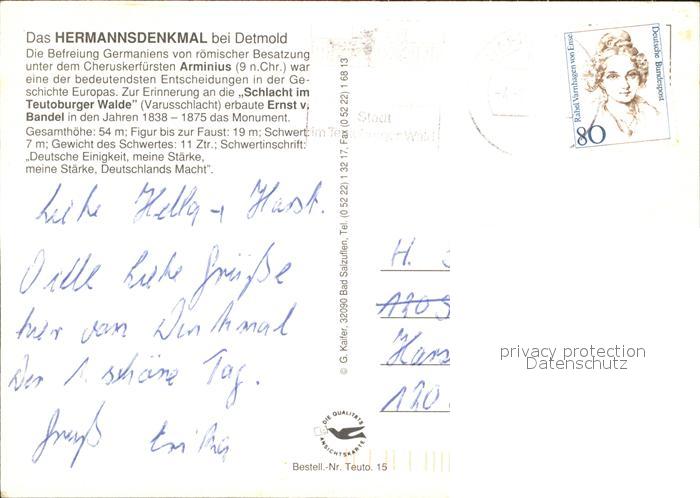 Das HERMANNSDENKMAL bei Detmold
Die Befreiung Germaniens von römischer Besatzung
unter dem Cheruskerfürsten Arminius (9 n.Chr.) war
eine der bedeutendsten Entscheidungen in der Ge-
schichte Europas. Zur Erinnerung an die „Schlacht im
Teutoburger Walde" (Varusschlacht) erbaute Ernst v.
Bandel in den Jahren 1838 – 1875 das Monument.
Gesamthöhe: 54 m; Figur bis zur Faust: 19 m; Schwert:
7 m; Gewicht des Schwertes: 11 Ztr.; Schwertinschrift:
„Deutsche Einigkeit, meine Stärke,
meine Stärke, Deutschlands Macht".
Stadt
im Teutoburger Wald
Liebe Hella + Horst.
Viele liebe Grüße
hier vom Denkmal
Der 1. schöne Tag.
Gruß Erika
© G. Käfer, 32090 Bad Salzuflen, Tel. (0 52 22) 1 32 17, Fax (0 52 22) 1 68 13
Rahel Varnhagen von Ense
Deutsche Bundespost
80
H.
1209
Hans
120
privacy protection
Datenschutz
DIE QUALITÄTS
ANSICHTSKARTE
Bestell.-Nr. Teuto. 15